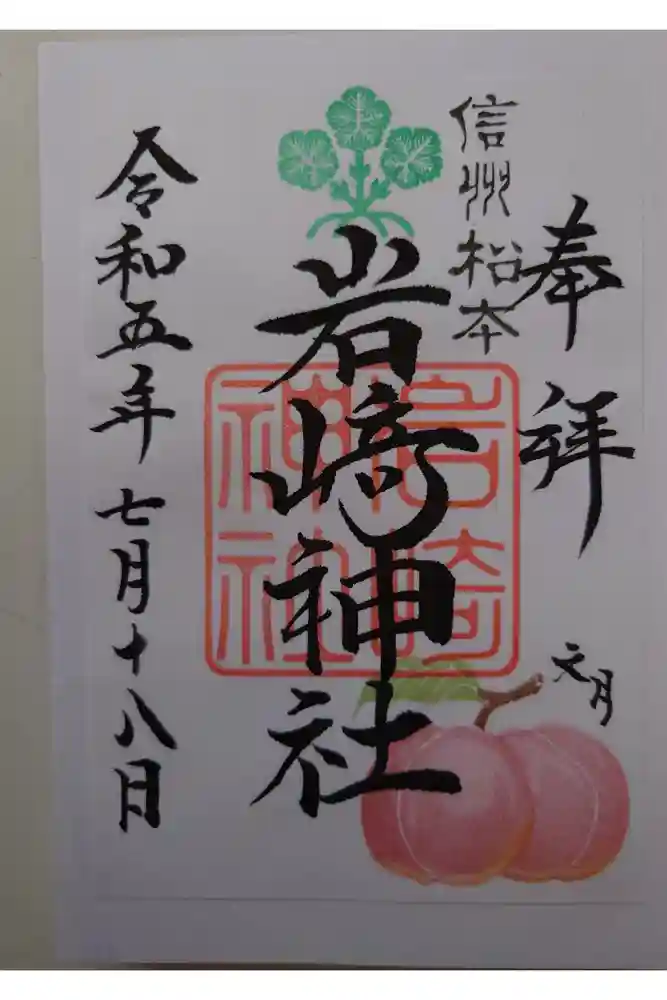 奉拝
文月
信州松本
岩崎神社
岩崎神社
令和五年七月十八日